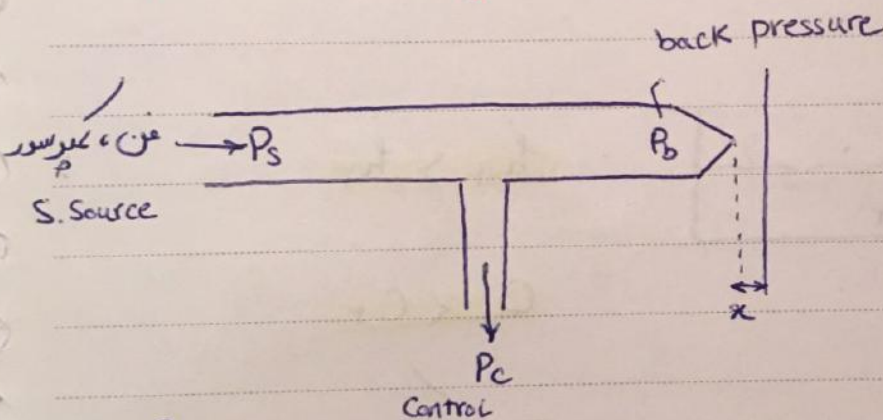 back pressure
فن، کمپرسور → Ps
Pb
S. Source
x
Pc
Control